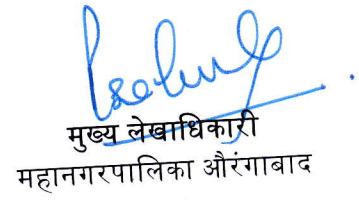 मुख्य लेखाधिकारी
महानगरपालिका औरंगाबाद